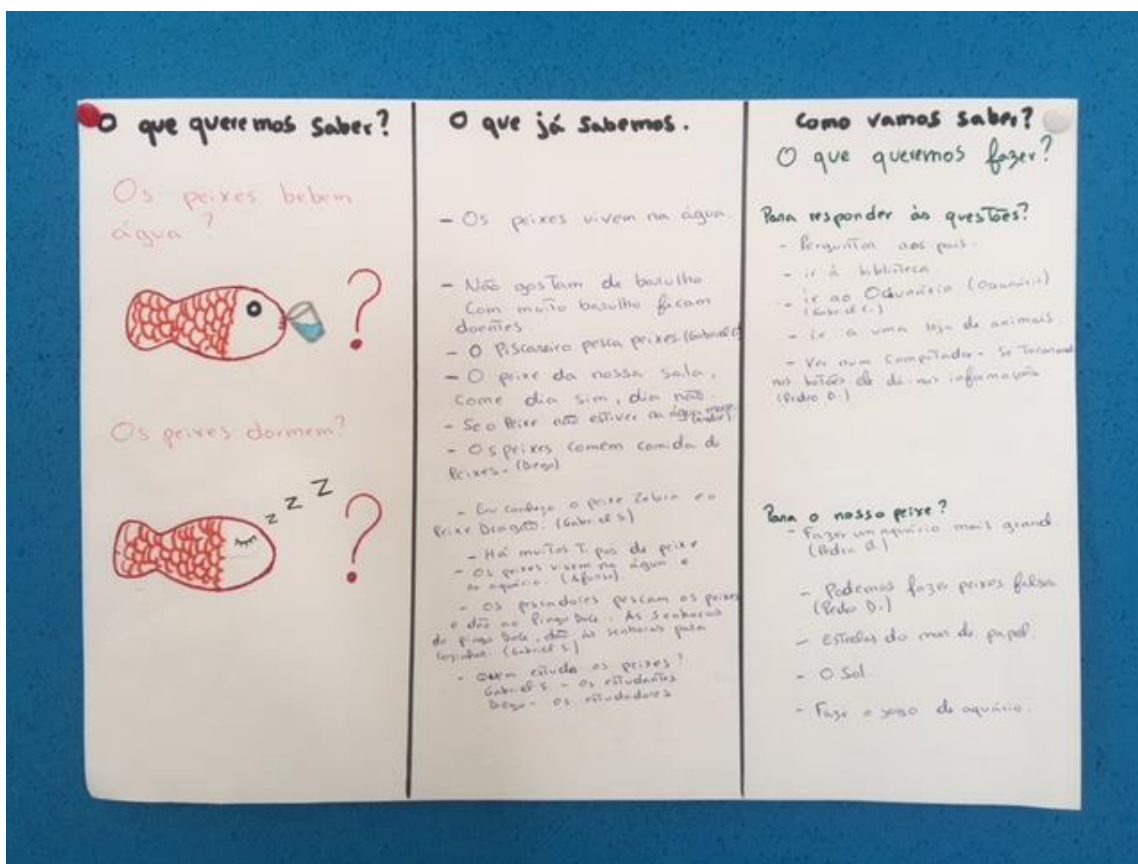 O que queremos saber?
Os peixes bebem
água?
?
Os peixes dormem?
z z Z
?
O que já sabemos.
- Os peixes vivem na água.
- Não gostam de barulho
Com muito barulho ficam
doentes.
- O Piscaseiro pesca peixes. (Gabriel
- O peixe da nossa sala,
come dia sim, dia não.
- Se o Peixe não estiver na água
- Os peixes comem comida de
Peixes. (Diego)
- Eu conheço o peixe Zebra e o
Peixe Dragão. (Gabriel S.)
- Há muitos Tipos de peixe
- Os peixes vivem na água e
no aquário. (Afonso)
- Os pescadores pescam os peixes
e dão ao Pingo Doce. As Senhoras
do pingo Doce, dão às senhoras para
cozinhar. (Gabriel S.)
- Quem estuda os peixes?
Gabriel S. - Os estudantes
Diego - os estudadores
Como vamos saber?
O que queremos fazer?
Para responder às questões?
- Perguntar aos pais.
- ir à biblioteca
- ir ao (Oceanário)
(Gabriel
- ir a uma loja de animais.
- Ver num Computador - Se
nos botões ele dá-nos informação
(Pedro D.)
Para o nosso peixe?
- Fazer um aquário mais grande.
(Pedro D.)
- Podemos fazer peixes falsos
(Pedro D.)
- Estrelas do mar de papel.
- O Sol
- Fazer o jogo do aquário.